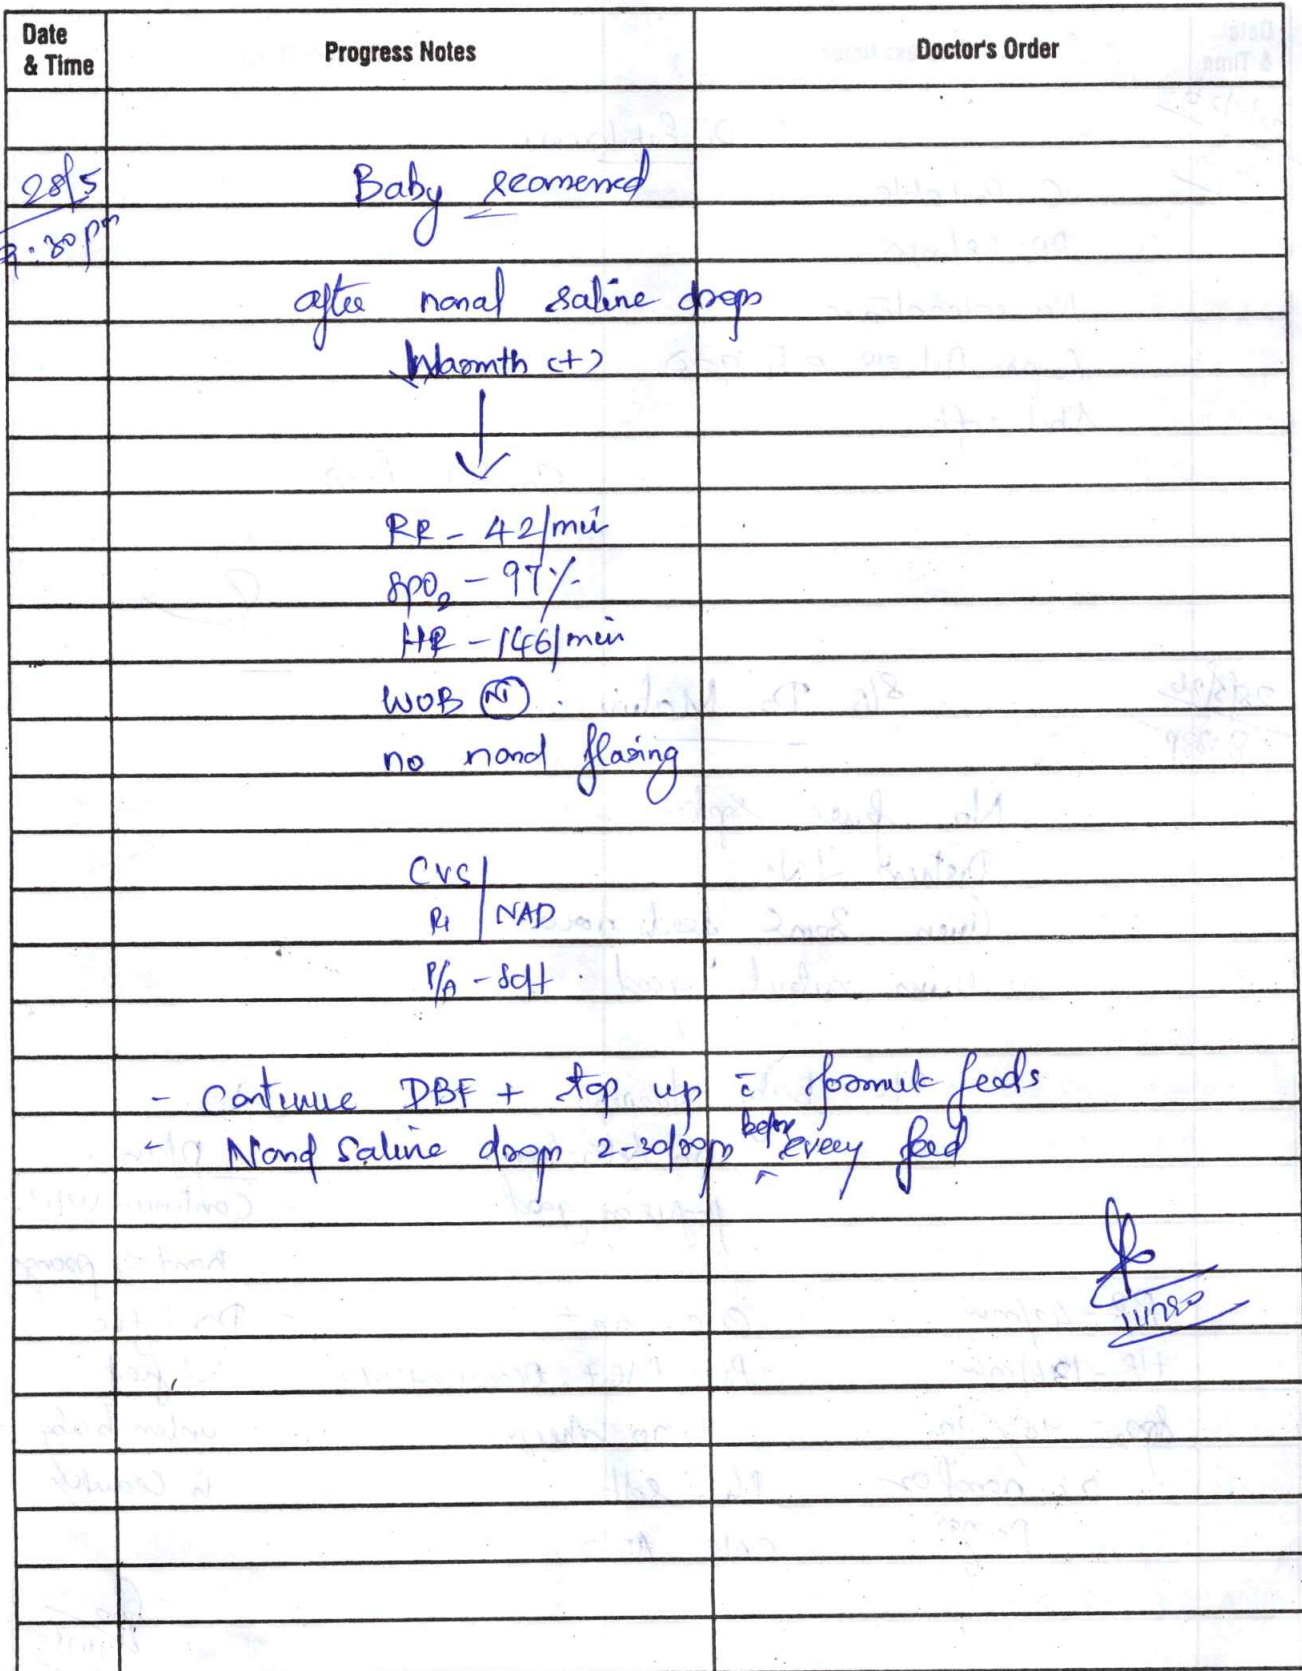 Date & Time Progress Notes Doctor's Order
28/5
Baby
after nasal saline drops
Warmth (+)
RR - 42/min
SpO2 - 97%
HR - 146/min
WOB (N)
no nasal flaring
CVS
RS NAD
P/A - Soft
- Continue DBF + top up c̄ formula feeds
- Nasal Saline drops 2-3drops before every feed